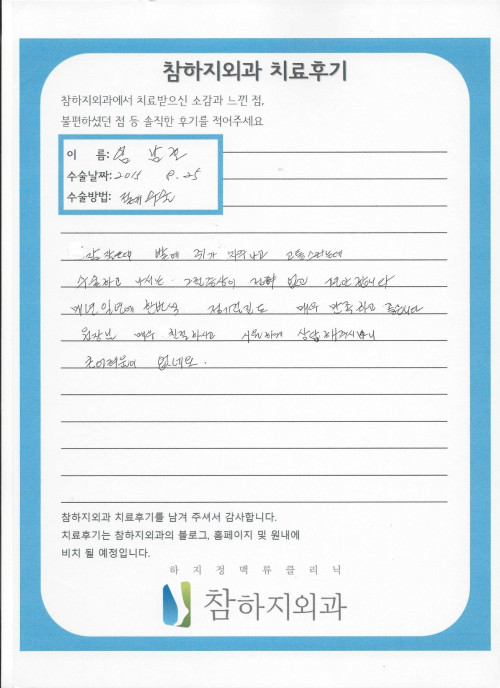 참하지외과 치료후기
참하지외과에서 치료받으신 소감과 느낀 점,
불편하셨던 점 등 솔직한 후기를 적어주세요
이 름:
수술날짜: 2015 25
수술방법: 절제 수술
밤에 쥐가 자주나고 고통스러웠는데
수술하고 나서는 그런증상이 전혀 없고 편안합니다
매년 일년에 한번씩 정기검진도 매우 만족하고 좋습니다
원장님 매우 친절하시고 시원하게 상담해주시니
어려움이 없네요.
참하지외과 치료후기를 남겨 주셔서 감사합니다.
치료후기는 참하지외과의 블로그, 홈페이지 및 원내에
비치 될 예정입니다.
하지정맥류클리닉
참하지외과